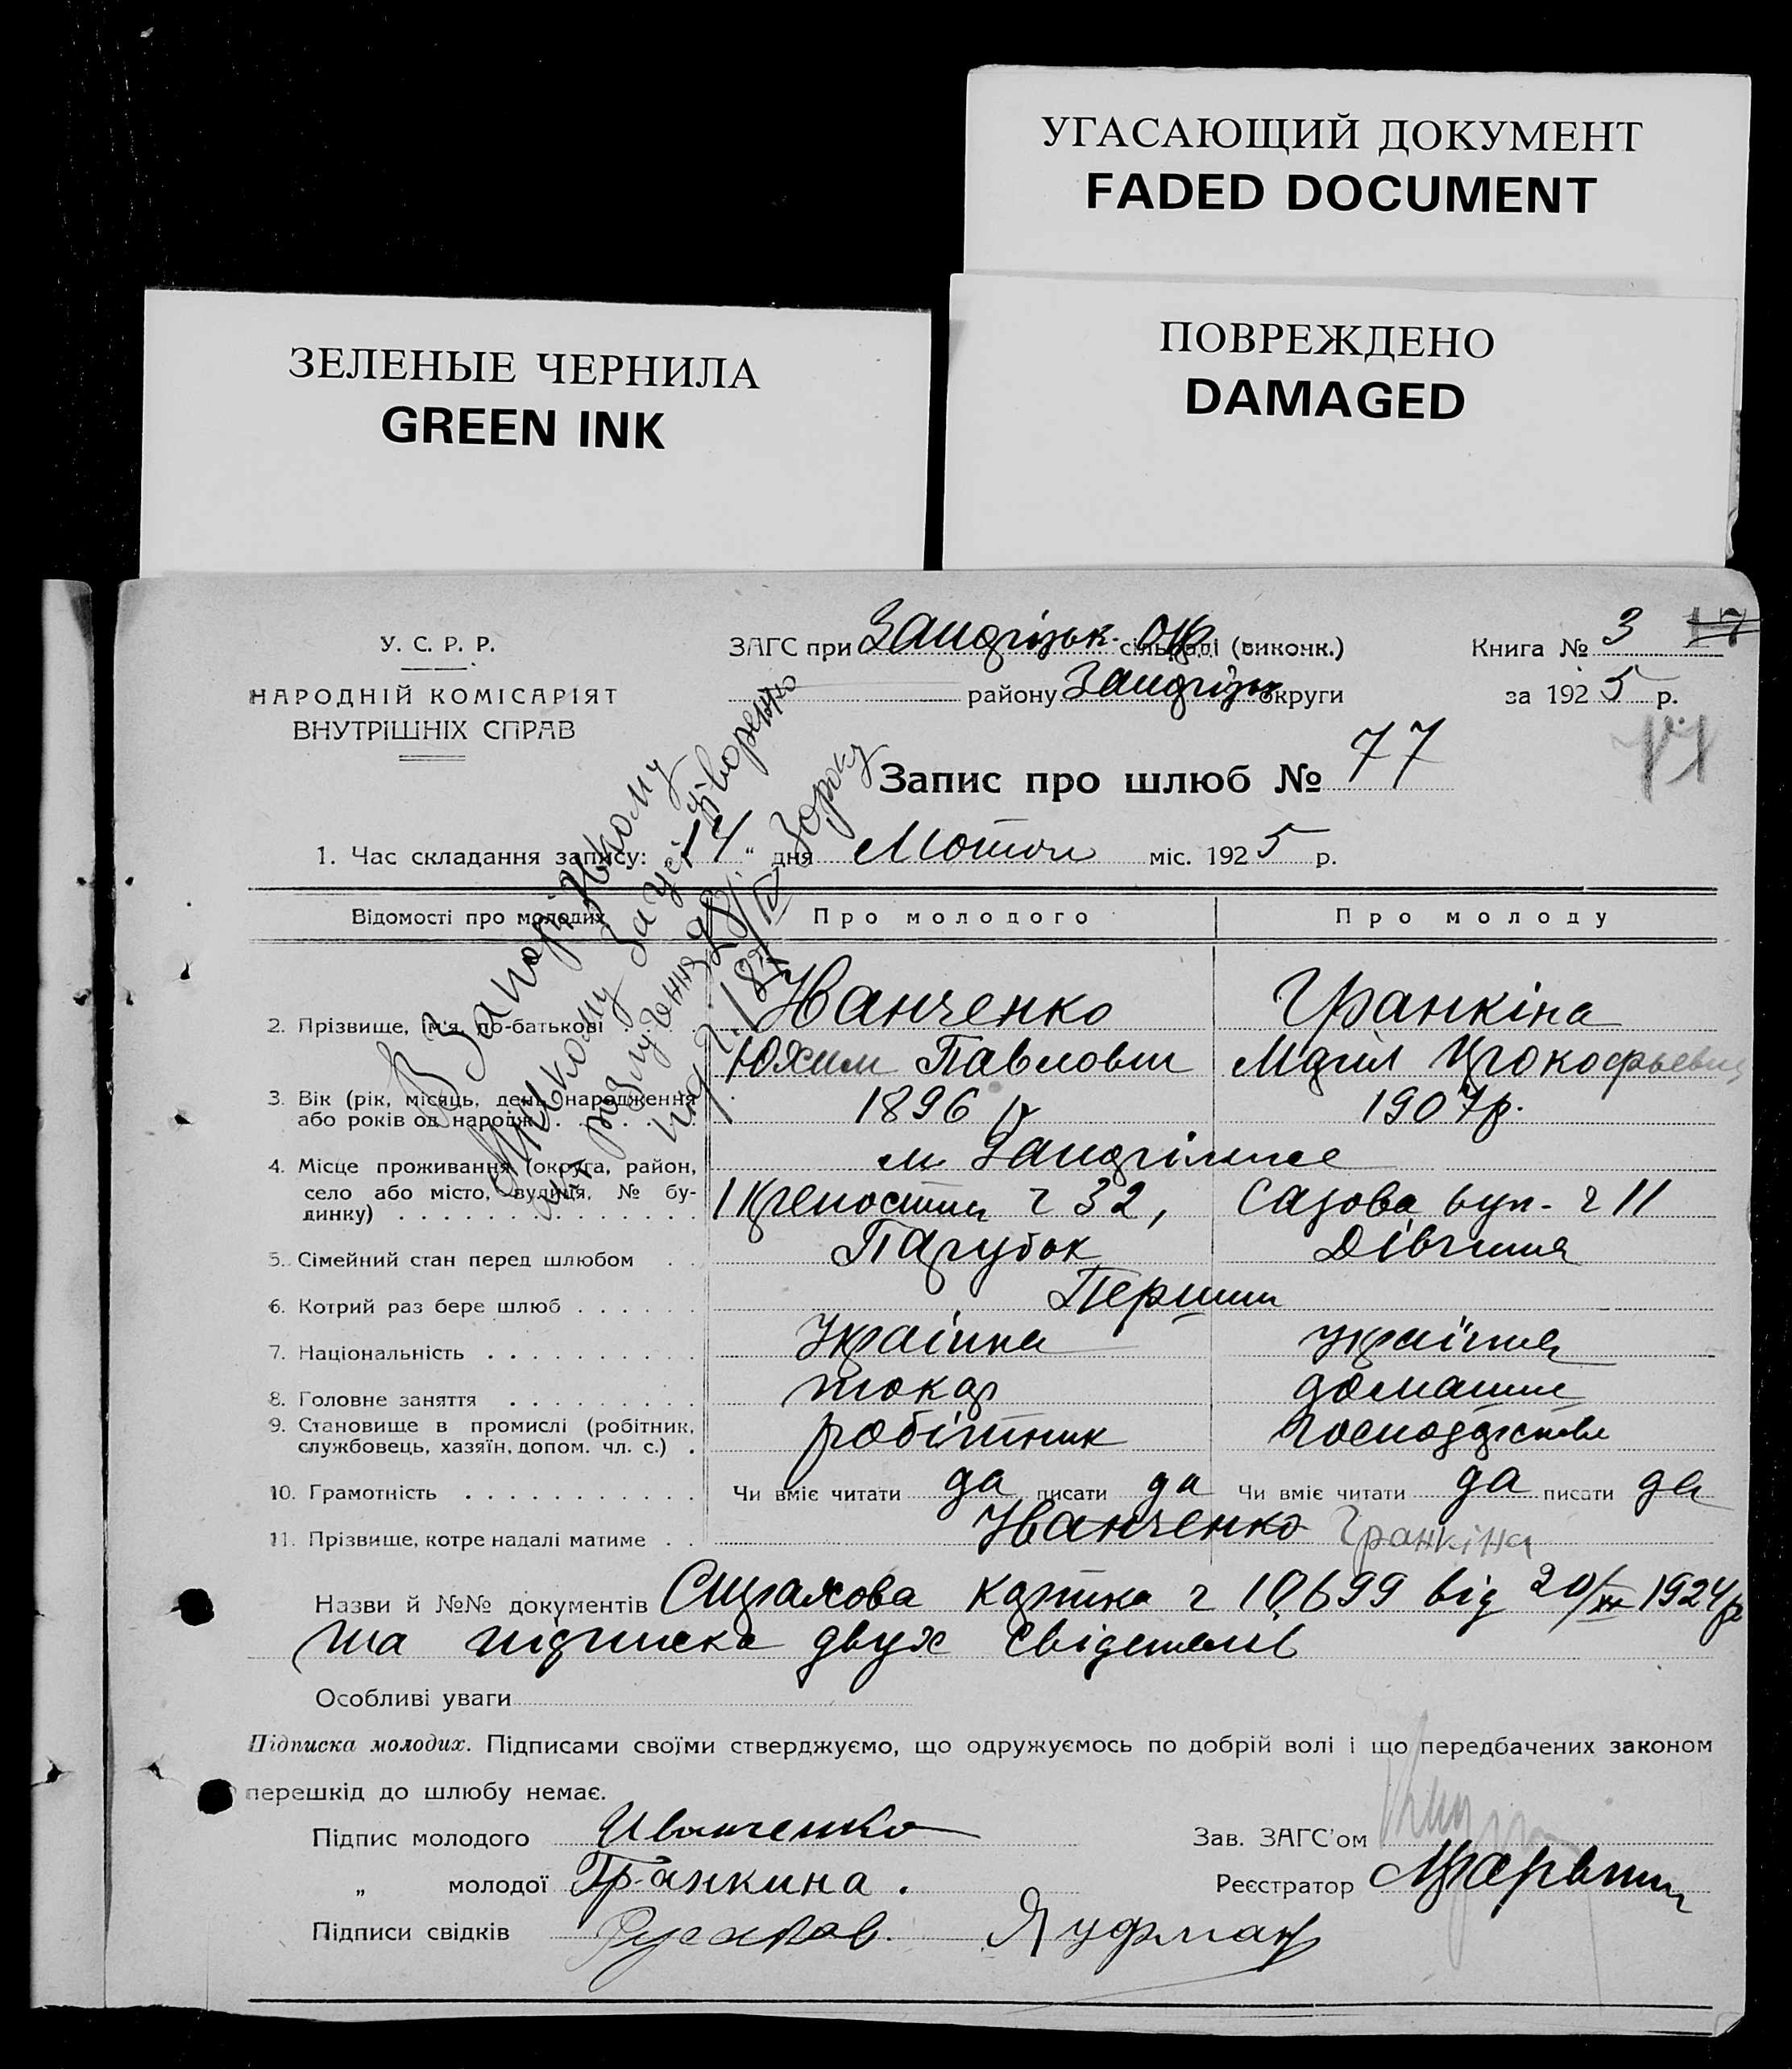 УГАСАЮЩИЙ ДОКУМЕНТ
FADED DOCUMENT
ЗЕЛЕНЫЕ ЧЕРНИЛА
GREEN INK
ПОВРЕЖДЕНО
DAMAGED
У. С. Р. Р.
НАРОДНІЙ КОМІСАРІЯТ
ВНУТРІШНІХ СПРАВ
ЗАГС при сільраді (виконк.)
району округи
Книга № 3 17
за 1925 р.
Запис про шлюб № 77
1. Час складання запису: 14 " дня міс. 1925 р.
Відомості про молодих Про молодого Про молоду
2. Прізвище, ім'я, по-батькові Иванченко Гранкіна
Юхим Павлович
3. Вік (рік, місяць, день народження
або років од народж.) 1896 р 1907 р.
4. Місце проживання (округа, район,
село або місто, вулиця, № бу-
динку)
ч 32, Садова вул. ч 11
5. Сімейний стан перед шлюбом Парубок Дівчина
6. Котрий раз бере шлюб Перший
7. Національність Украінка україна
8. Головне заняття токар домашнє
9. Становище в промислі (робітник,
службовець, хазяїн, допом. чл. с.) робітник
10. Грамотність Чи вміє читати да писати да Чи вміє читати да писати да
11. Прізвище, котре надалі матиме Иванченко Гранкіна
Назви й №№ документів картка ч 10699 від 20/XII 1924 р
та підписка двух свідетелів
Особливі уваги
Підписка молодих. Підписами своїми стверджуємо, що одружуємось по добрій волі і що передбачених законом
перешкід до шлюбу немає.
Підпис молодого Иванченко
Зав. ЗАГС'ом
„ молодої Гранкина.
Реєстратор
Підписи свідків